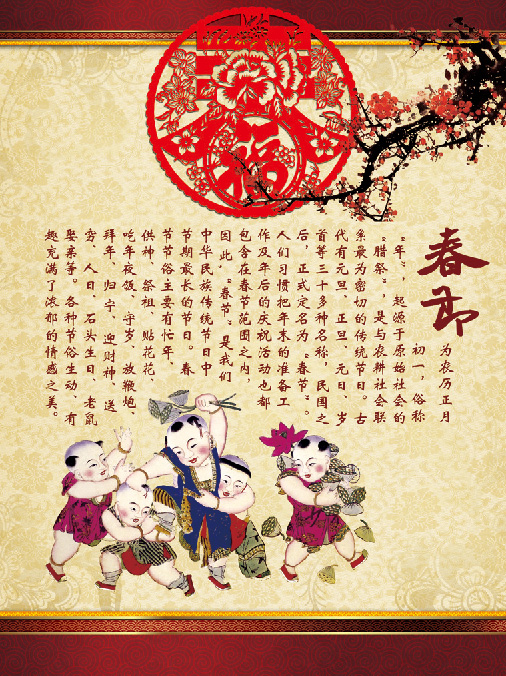 福
春节
为农历正月
初一，俗称
“年”，起源于原始社会的
“腊祭”，是与农耕社会联
系最为密切的传统节日。古
代有元旦、正旦、元日、岁
首等三十多种名称，民国之
后，正式定名为“春节”。
人们习惯把年末的准备工
作及年后的庆祝活动也都
包含在春节范围之内，
因此，“春节”是我们
中华民族传统节日中
节期最长的节日。春
节节俗主要有忙年、
供神、祭祖、贴花花、
吃年夜饭、守岁、放鞭炮、
拜年、归宁、迎财神、送
穷、人日、石头生日、老鼠
娶亲等。各种节俗生动、有
趣充满了浓郁的情感之美。